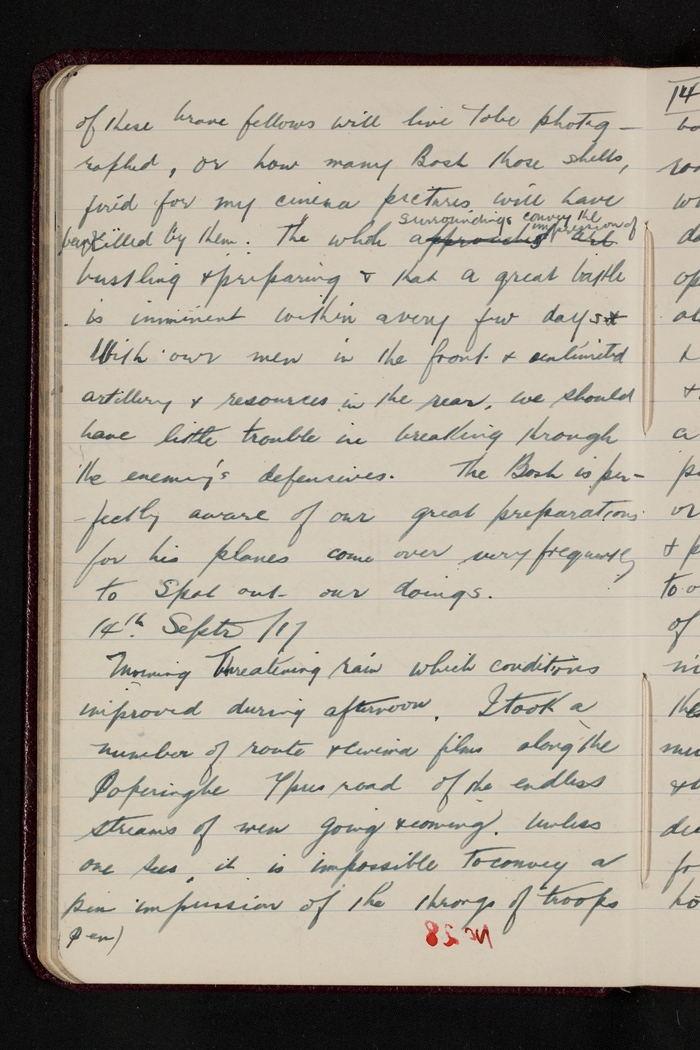 of these brave fellows will live to be photog-
raphed, or how many Bosh those shells,
fired for my cinema pictures will have
been killed by them. The whole surroundings convey the impression of
bustling & preparing & that a great battle
is imminent within a very few days
With our men in the front & unlimited
artillery & resources in the rear, we should
have little trouble in breaking through
the enemy's defensives. The Bosh is per-
-fectly aware of our great preparations
for his planes come over very frequently
to spot out our doings.
14th Septr /17
Morning threatening rain which conditions
improved during afternoon. I took a
number of route & cinema films along the
Poperinghe Ypres road of the endless
streams of men going & coming. Unless
one sees it is impossible to convey a
pen impression of the throngs of troops
(pen)
No 28
14